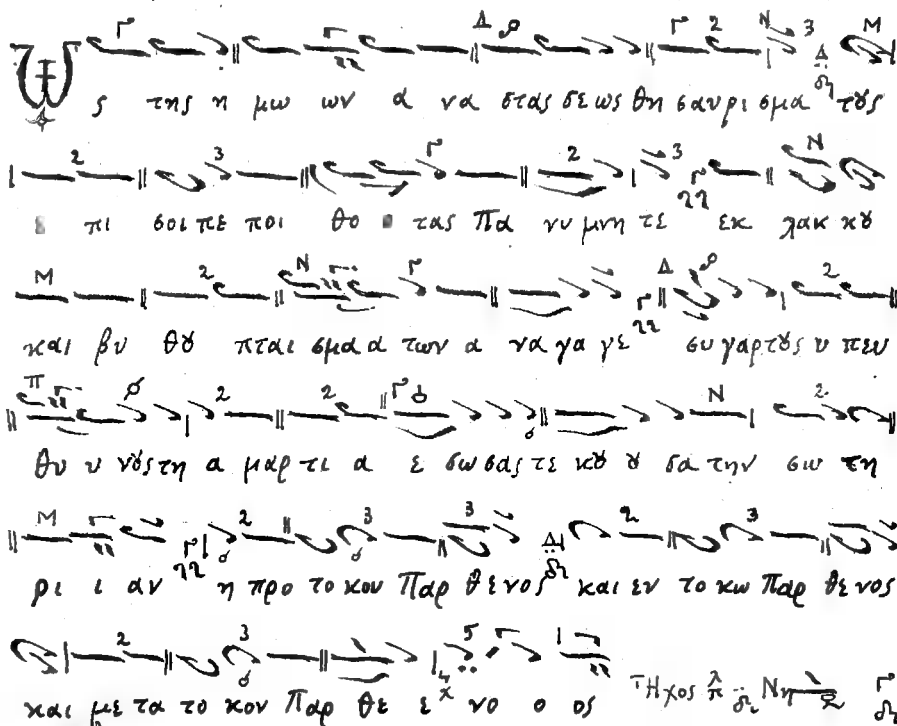 Ως της η μω ων α να στας σε ως θη σαυρι σμα τους
ε πι σοι πε ποι θο ο τας Πα νυ μνη τε εκ λακ κου
και βυ θου πται σμα α των α να γα γε συ γαρ τους υ πευ
θυ υ νους τη α μαρ τι α ε σω σας τε κου ου σα την σω τη
ρι ι αν η προ το κου Παρ θενος και εν το κω Παρ θε νος
και με τα το κον Παρ θε ε νο ο ος Ηχος λ π Νη